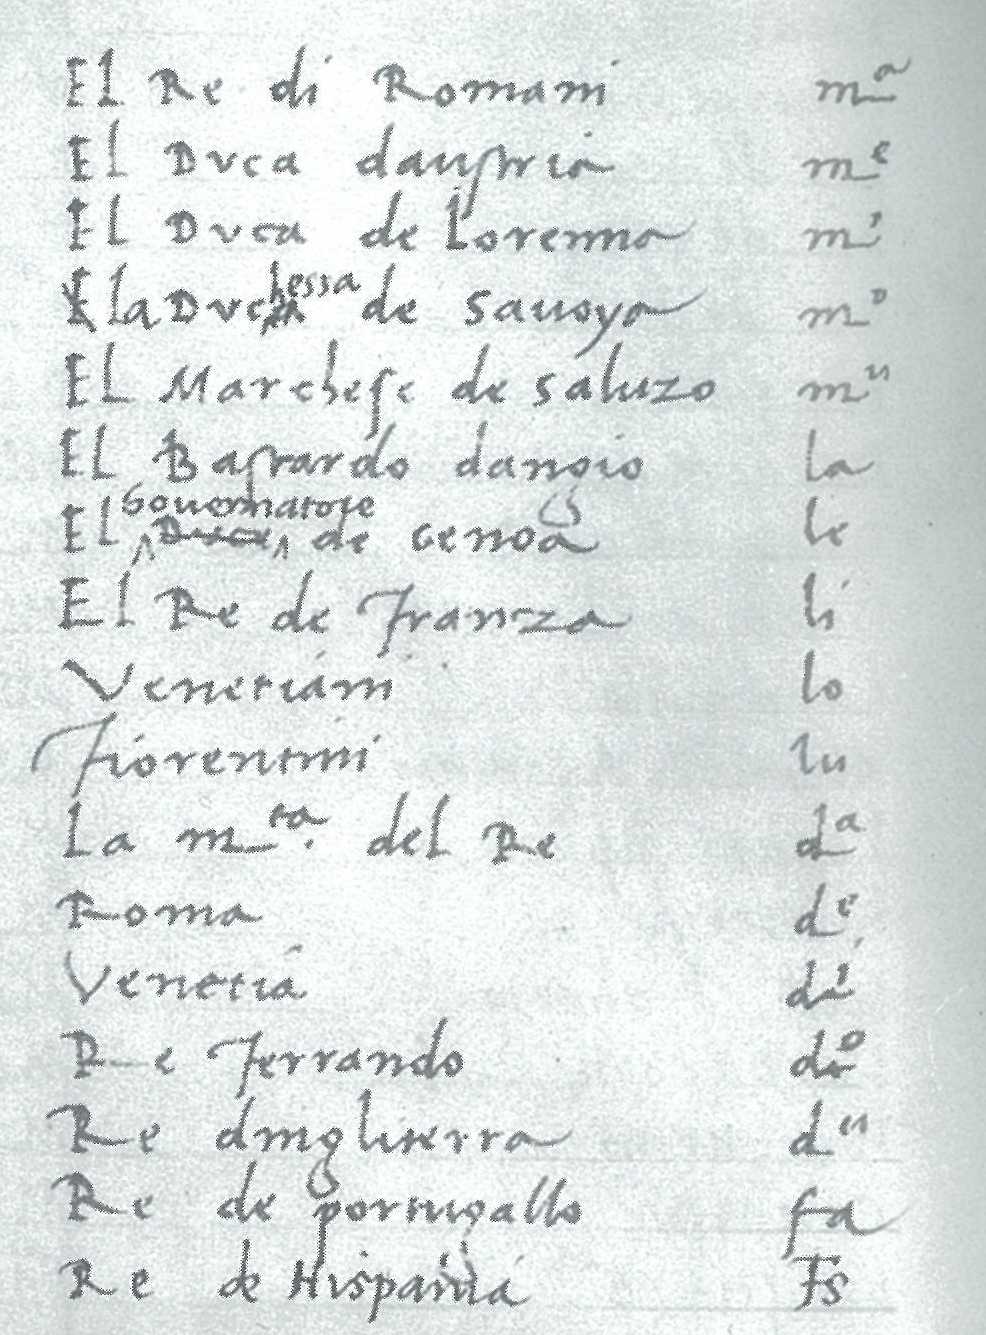 El Re di Romani mᵃ
El Duca daustria mᵉ
El Duca de Lorenna mⁱ
E la Duchessa de Sauoya mᵒ
El Marchese de Saluzo mᵘ
El Bastardo dangio la
El Gouernatore Duca de Genoa le
El Re de Franza li
Venetiani lo
Fiorentini lu
La mᵗᵃ. del Re dᵃ
Roma dᵉ
Venetia dⁱ
Re Ferrando dᵒ
Re dingliterra dᵘ
Re de portugallo fa
Re de Hispania Fs